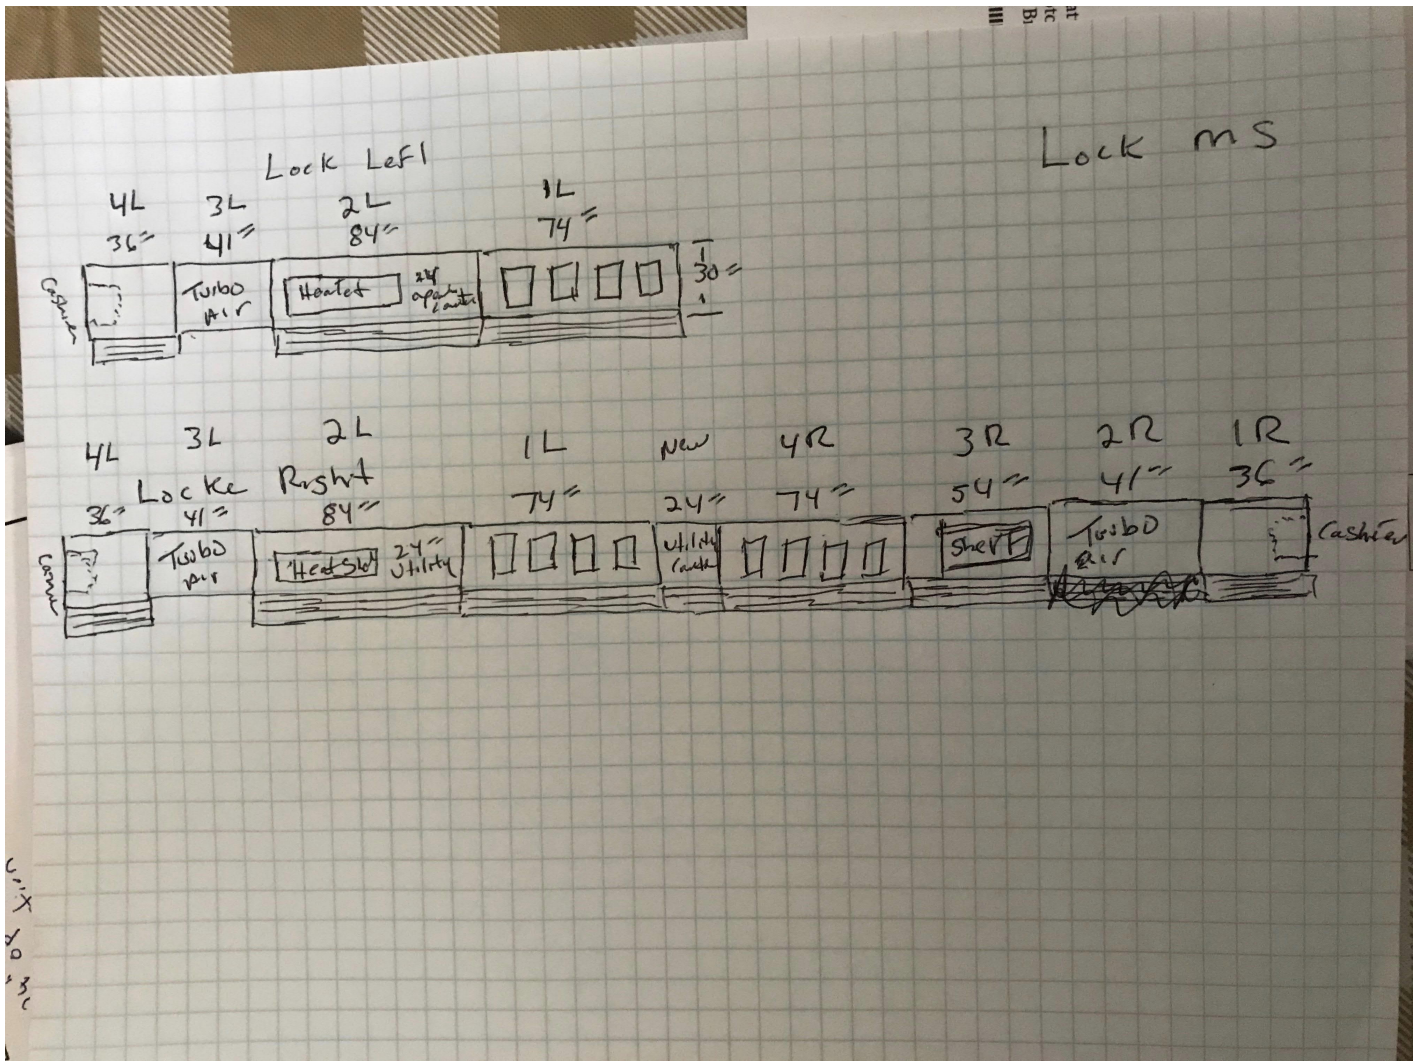 Lock MS
Lock Left
4L 3L 2L 1L
36" 41" 84" 74"
Cashier
Turbo Air
Heated
24"
30"
4L 3L 2L 1L New 4R 3R 2R 1R
Locke Right
36" 41" 84" 74" 24" 74" 54" 41" 36"
Turbo Air
Heat Shelf
24" Utility
Utility
Shelf
Turbo Air
Cashier